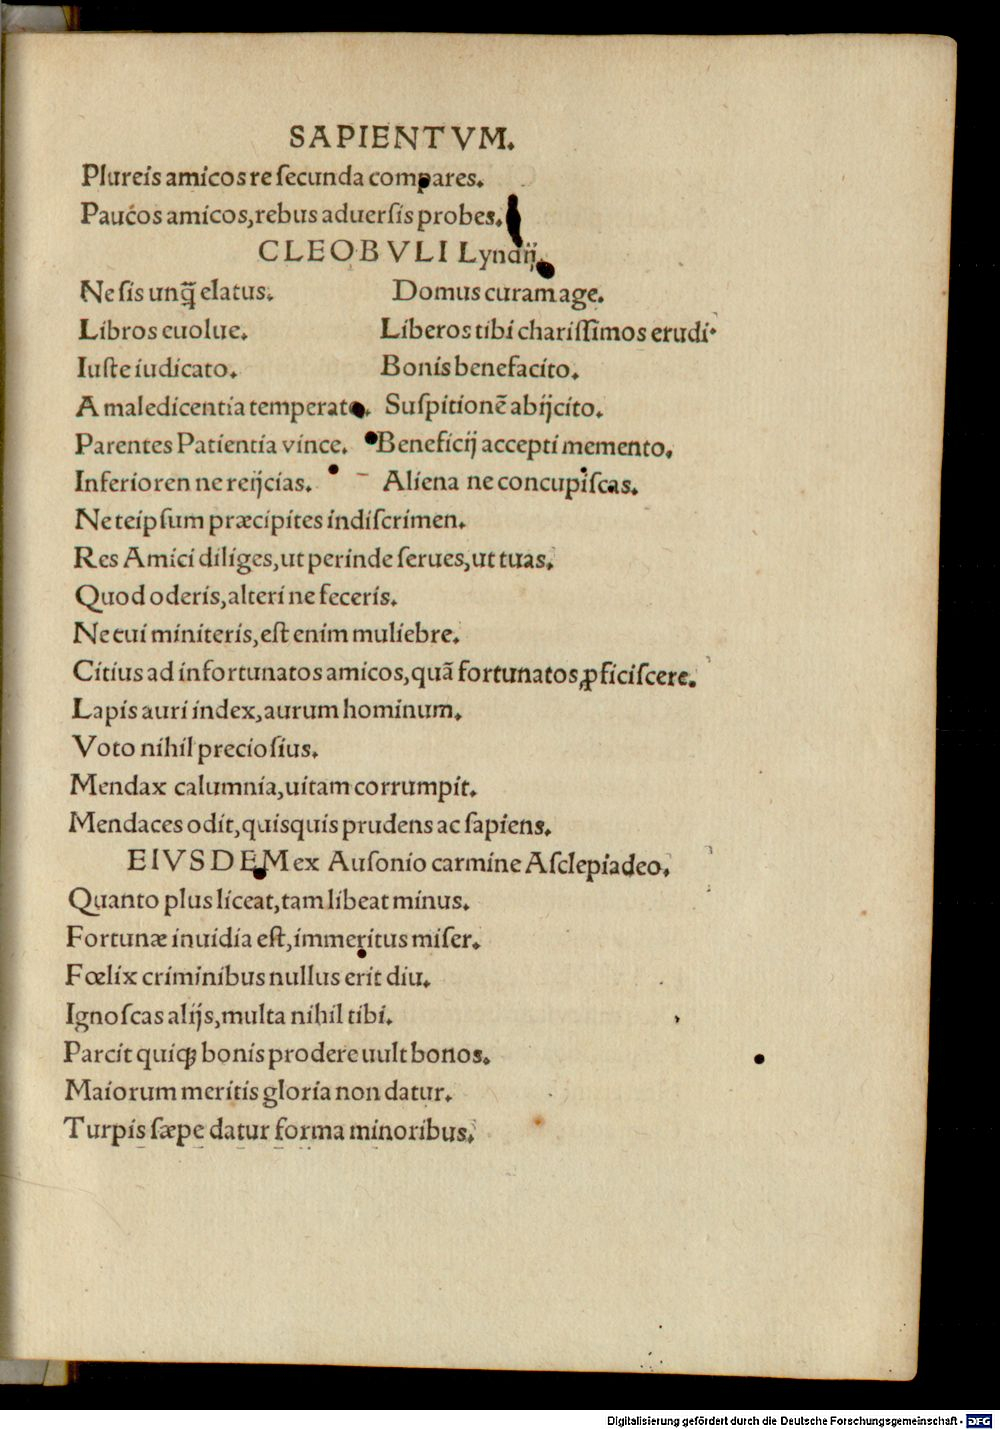 SAPIENTVM.
Plureis amicos re ſecunda compares.
Paucos amicos, rebus aduerſis probes.
CLEOBVLI Lyndij.
Ne ſis unq̃ elatus. Domus curam age.
Libros euolue. Liberos tibi chariſſimos erudi.
Iuſte iudicato. Bonis benefacito.
A maledicentia temperato. Suſpitionẽ abijcito.
Parentes Patientia vince. Beneficij accepti memento.
Inferioren ne reijcias. Aliena ne concupiſcas.
Ne teipſum præcipites in diſcrimen.
Res Amici diliges, ut perinde ſerues, ut tuas.
Quod oderis, alteri ne feceris.
Ne cui miniteris, eſt enim muliebre.
Citius ad infortunatos amicos, quã fortunatos ꝓficiſcere.
Lapis auri index, aurum hominum.
Voto nihil precioſius.
Mendax calumnia, uitam corrumpit.
Mendaces odit, quisquis prudens ac ſapiens.
EIVSDEM ex Auſonio carmine Aſclepiadeo.
Quanto plus liceat, tam libeat minus.
Fortunæ inuidia eſt, immeritus miſer.
Fœlix criminibus nullus erit diu.
Ignoſcas alijs, multa nihil tibi.
Parcit quiqꝫ bonis prodere uult bonos.
Maiorum meritis gloria non datur.
Turpis ſæpe datur forma minoribus.
Digitalisierung gefördert durch die Deutsche Forschungsgemeinschaft - DFG